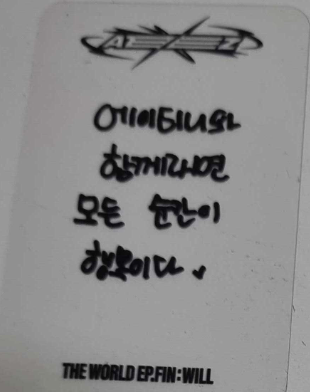 에이티니와
함께라면
모든 순간이
행복이다
THE WORLD EP.FIN : WILL